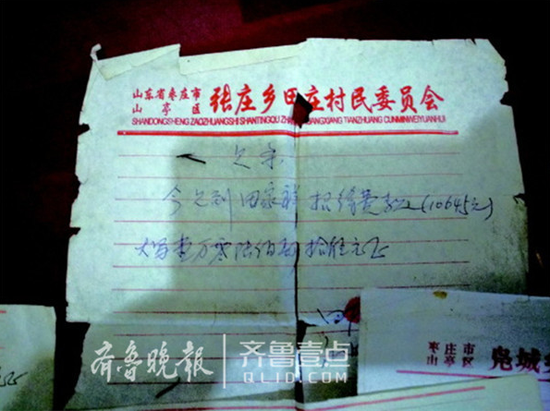 山东省枣庄市
山亭区
张庄乡田庄村民委员会
SHANDONGSHENG ZAOZHUANGSHI SHANTINGQU ZHANGZHUANGXIANG TIANZHUANG CUNMINWEIYUANHUI
欠条
今欠到田家祥招待费款(10645元)
大写壹万零陆佰肆拾伍元正
田
枣庄市
山亭区
凫城
齐鲁晚报
齐鲁壹点
QLID.COM